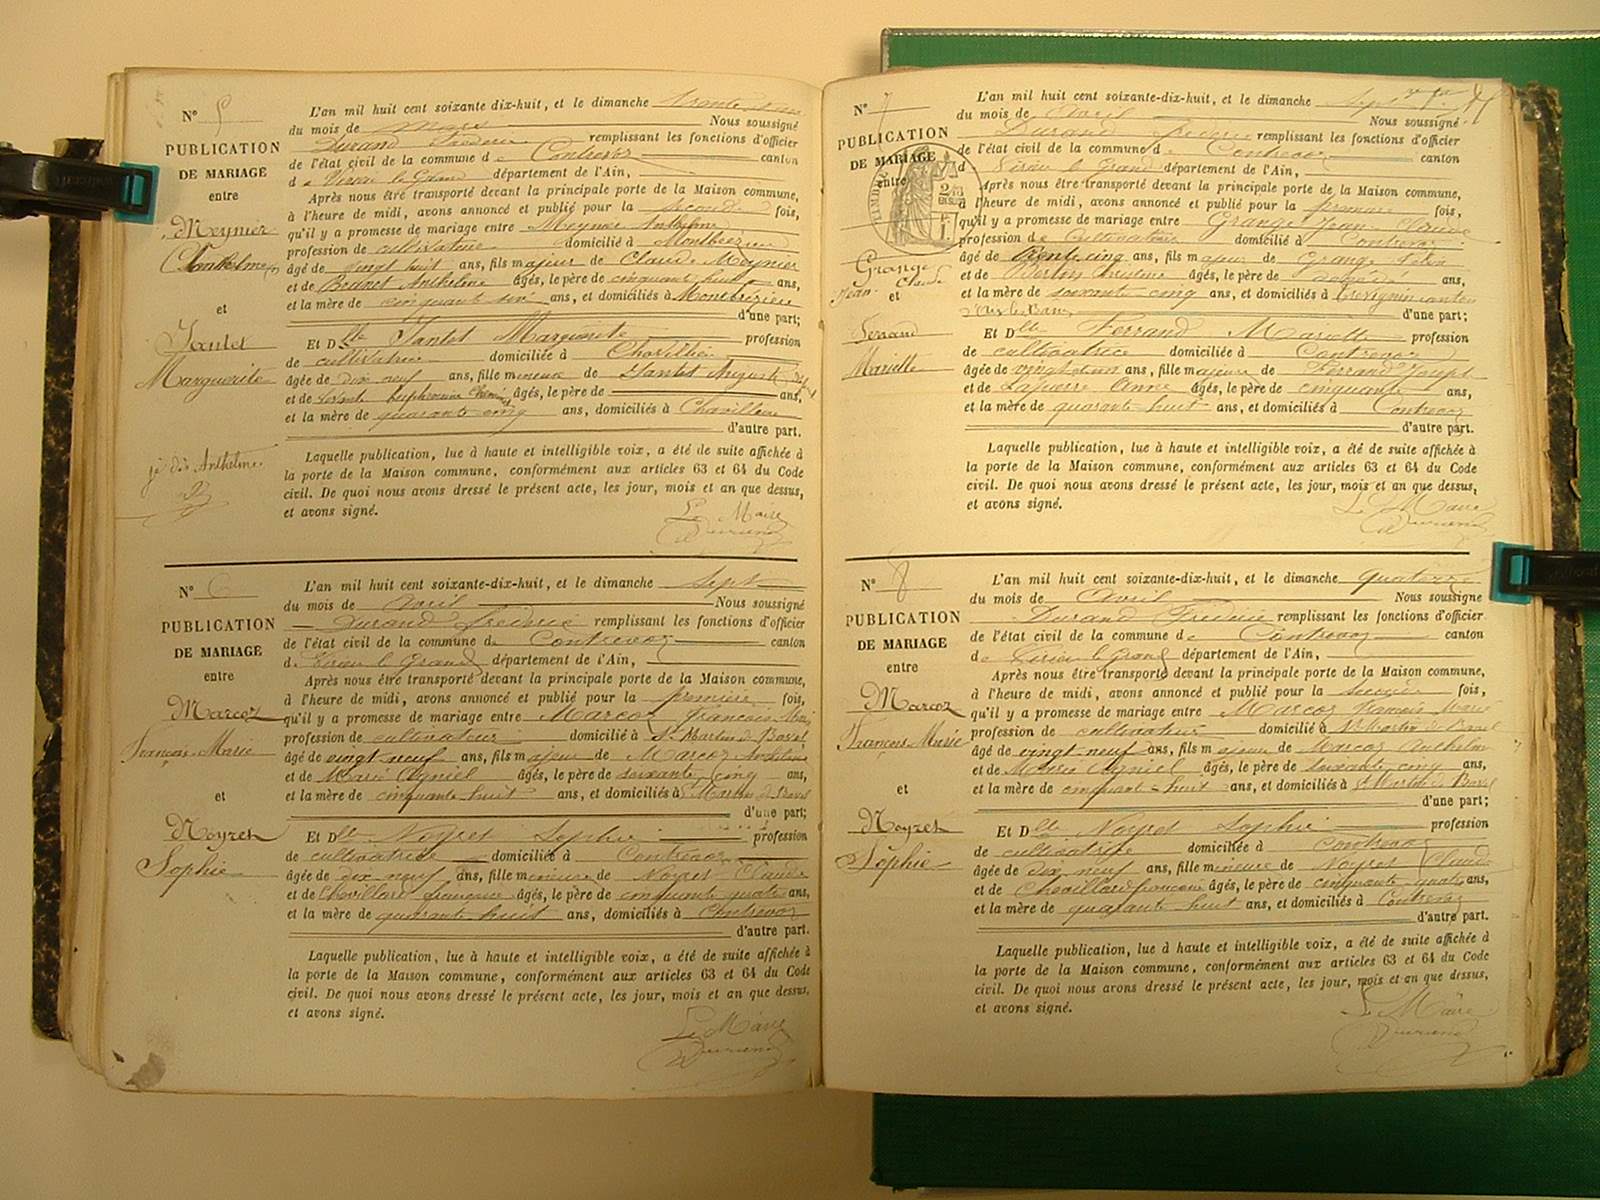 N° 5
PUBLICATION
DE MARIAGE
entre
Meynier
Anthelme
et
Jantet
Marguerite
je dis Anthelme
L'an mil huit cent soixante dix-huit, et le dimanche trente et un
du mois de Mars Nous soussigné
Durand Frédéric remplissant les fonctions d'officier
de l'état civil de la commune de Contrevoz canton
de Virieu le Grand département de l'Ain,
Après nous être transporté devant la principale porte de la Maison commune,
à l'heure de midi, avons annoncé et publié pour la seconde fois,
qu'il y a promesse de mariage entre Meynier Anthelme
profession de cultivateur domicilié à
âgé de vingt huit ans, fils majeur de Claude Meynier
et de Brunet Anthelmette âgés, le père de cinquante huit ans,
et la mère de cinquante ans, et domiciliés à
d'une part;
Et Dlle Jantet Marguerite profession
de cultivatrice domiciliée à Chavillieu
âgée de dix neuf ans, fille mineure de Jantet Auguste
et de âgés, le père de ans,
et la mère de quarante cinq ans, domiciliés à Chavillieu
d'autre part.
Laquelle publication, lue à haute et intelligible voix, a été de suite affichée à
la porte de la Maison commune, conformément aux articles 63 et 64 du Code
civil. De quoi nous avons dressé le présent acte, les jour, mois et an que dessus,
et avons signé.
Le Maire
Durand
N° 6
PUBLICATION
DE MARIAGE
entre
Marcoz
François Marie
et
Noyret
Sophie
L'an mil huit cent soixante-dix-huit, et le dimanche sept
du mois de Avril Nous soussigné
Durand Frédéric remplissant les fonctions d'officier
de l'état civil de la commune de Contrevoz canton
de Virieu le Grand département de l'Ain,
Après nous être transporté devant la principale porte de la Maison commune,
à l'heure de midi, avons annoncé et publié pour la première fois,
qu'il y a promesse de mariage entre Marcoz François Marie
profession de cultivateur domicilié à St Martin de Bavel
âgé de vingt-neuf ans, fils majeur de Marcoz Anthelme
et de Marie Agniel âgés, le père de soixante cinq ans,
et la mère de cinquante huit ans, et domiciliés à St Martin de Bavel
d'une part;
Et Dlle Noyret Sophie profession
de cultivatrice domiciliée à Contrevoz
âgée de dix neuf ans, fille mineure de Noyret Claude
et de Chevillard françoise âgés, le père de cinquante quatre ans,
et la mère de quarante huit ans, domiciliés à Contrevoz
d'autre part.
Laquelle publication, lue à haute et intelligible voix, a été de suite affichée à
la porte de la Maison commune, conformément aux articles 63 et 64 du Code
civil. De quoi nous avons dressé le présent acte, les jour, mois et an que dessus,
et avons signé.
Le Maire
Durand
N° 7
PUBLICATION
DE MARIAGE
entre
Grange
Jean Claude
et
Ferrand
Mariette
L'an mil huit cent soixante-dix-huit, et le dimanche sept
du mois de Avril Nous soussigné
Durand Frédéric remplissant les fonctions d'officier
de l'état civil de la commune de Contrevoz canton
de Virieu le Grand département de l'Ain,
Après nous être transporté devant la principale porte de la Maison commune,
à l'heure de midi, avons annoncé et publié pour la première fois,
qu'il y a promesse de mariage entre Grange Jean Claude
profession de Cultivateur domicilié à Contrevoz
âgé de trente cinq ans, fils majeur de Grange
et de âgés, le père de décédé ans,
et la mère de soixante cinq ans, et domiciliés à Trévignin canton
d'Aix les Bains d'une part;
Et Dlle Ferrand Mariette profession
de cultivatrice domiciliée à Contrevoz
âgée de vingt et un ans, fille majeure de Ferrand Joseph
et de Anne âgés, le père de cinquante ans,
et la mère de quarante huit ans, et domiciliés à Contrevoz
d'autre part.
Laquelle publication, lue à haute et intelligible voix, a été de suite affichée à
la porte de la Maison commune, conformément aux articles 63 et 64 du Code
civil. De quoi nous avons dressé le présent acte, les jour, mois et an que dessus,
et avons signé.
Le Maire
Durand
N° 8
PUBLICATION
DE MARIAGE
entre
Marcoz
François Marie
et
Noyret
Sophie
L'an mil huit cent soixante-dix-huit, et le dimanche quatorze
du mois de Avril Nous soussigné
Durand Frédéric remplissant les fonctions d'officier
de l'état civil de la commune de Contrevoz canton
de Virieu le Grand département de l'Ain,
Après nous être transporté devant la principale porte de la Maison commune,
à l'heure de midi, avons annoncé et publié pour la seconde fois,
qu'il y a promesse de mariage entre Marcoz François Marie
profession de cultivateur domicilié à St Martin de Bavel
âgé de vingt-neuf ans, fils majeur de Marcoz Anthelme
et de Marie Agniel âgés, le père de soixante cinq ans,
et la mère de cinquante-huit ans, et domiciliés à St Martin de Bavel
d'une part;
Et Dlle Noyret Sophie profession
de cultivatrice domiciliée à Contrevoz
âgée de dix neuf ans, fille mineure de Noyret Claude
et de Chevillard françoise âgés, le père de cinquante quatre ans,
et la mère de quarante huit ans, et domiciliés à Contrevoz
d'autre part.
Laquelle publication, lue à haute et intelligible voix, a été de suite affichée à
la porte de la Maison commune, conformément aux articles 63 et 64 du Code
civil. De quoi nous avons dressé le présent acte, les jour, mois et an que dessus,
et avons signé.
Le Maire
Durand